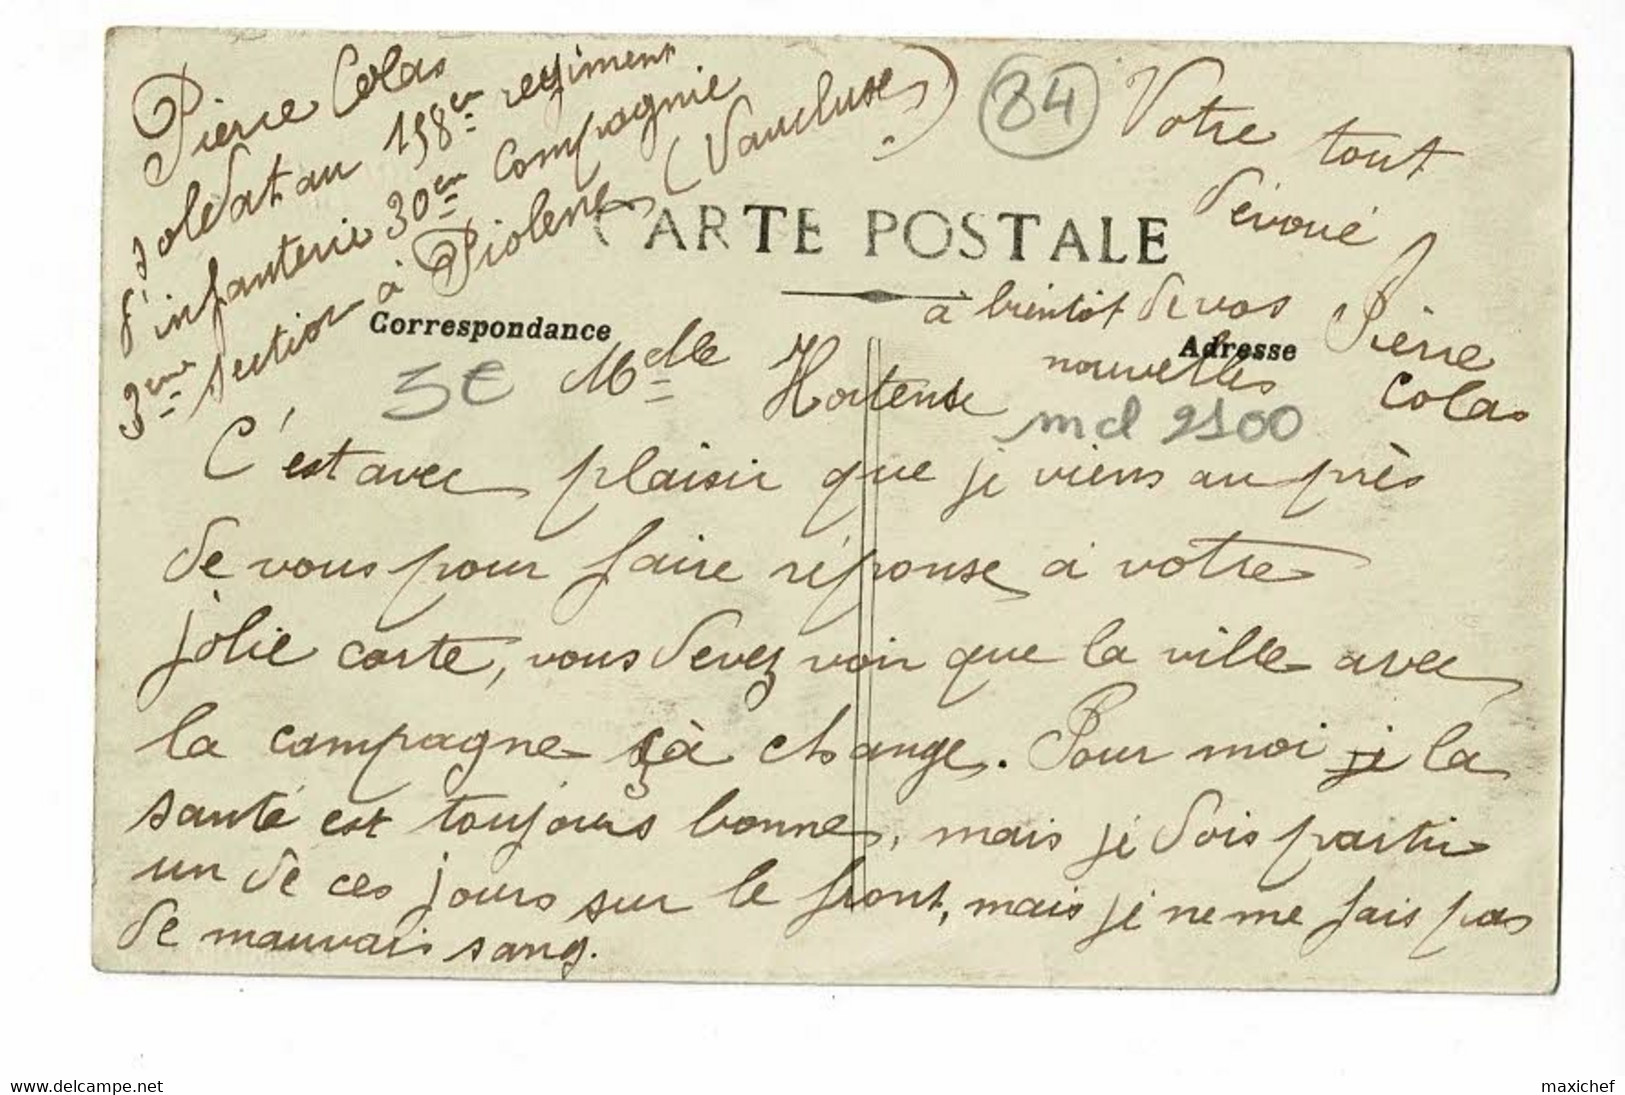 Pierre Colas
soldat au 158em regiment
d'infanterie 30em Compagnie
3eme section à Piolenc (Vaucluse)
84
Votre tout
dévoué
CARTE POSTALE
à bientôt de vos
nouvelles
Pierre
Colas
Correspondance
Adresse
3€
Melle Hortense
md 2100
C'est avec plaisir que je viens au près
de vous pour faire réponse à votre
jolie carte, vous devez voir que la ville avec
la campagne çà change. Pour moi je la
santé est toujours bonne, mais je dois partir
un de ces jours sur le front, mais je ne me fais pas
de mauvais sang.
www.delcampe.net
maxichef